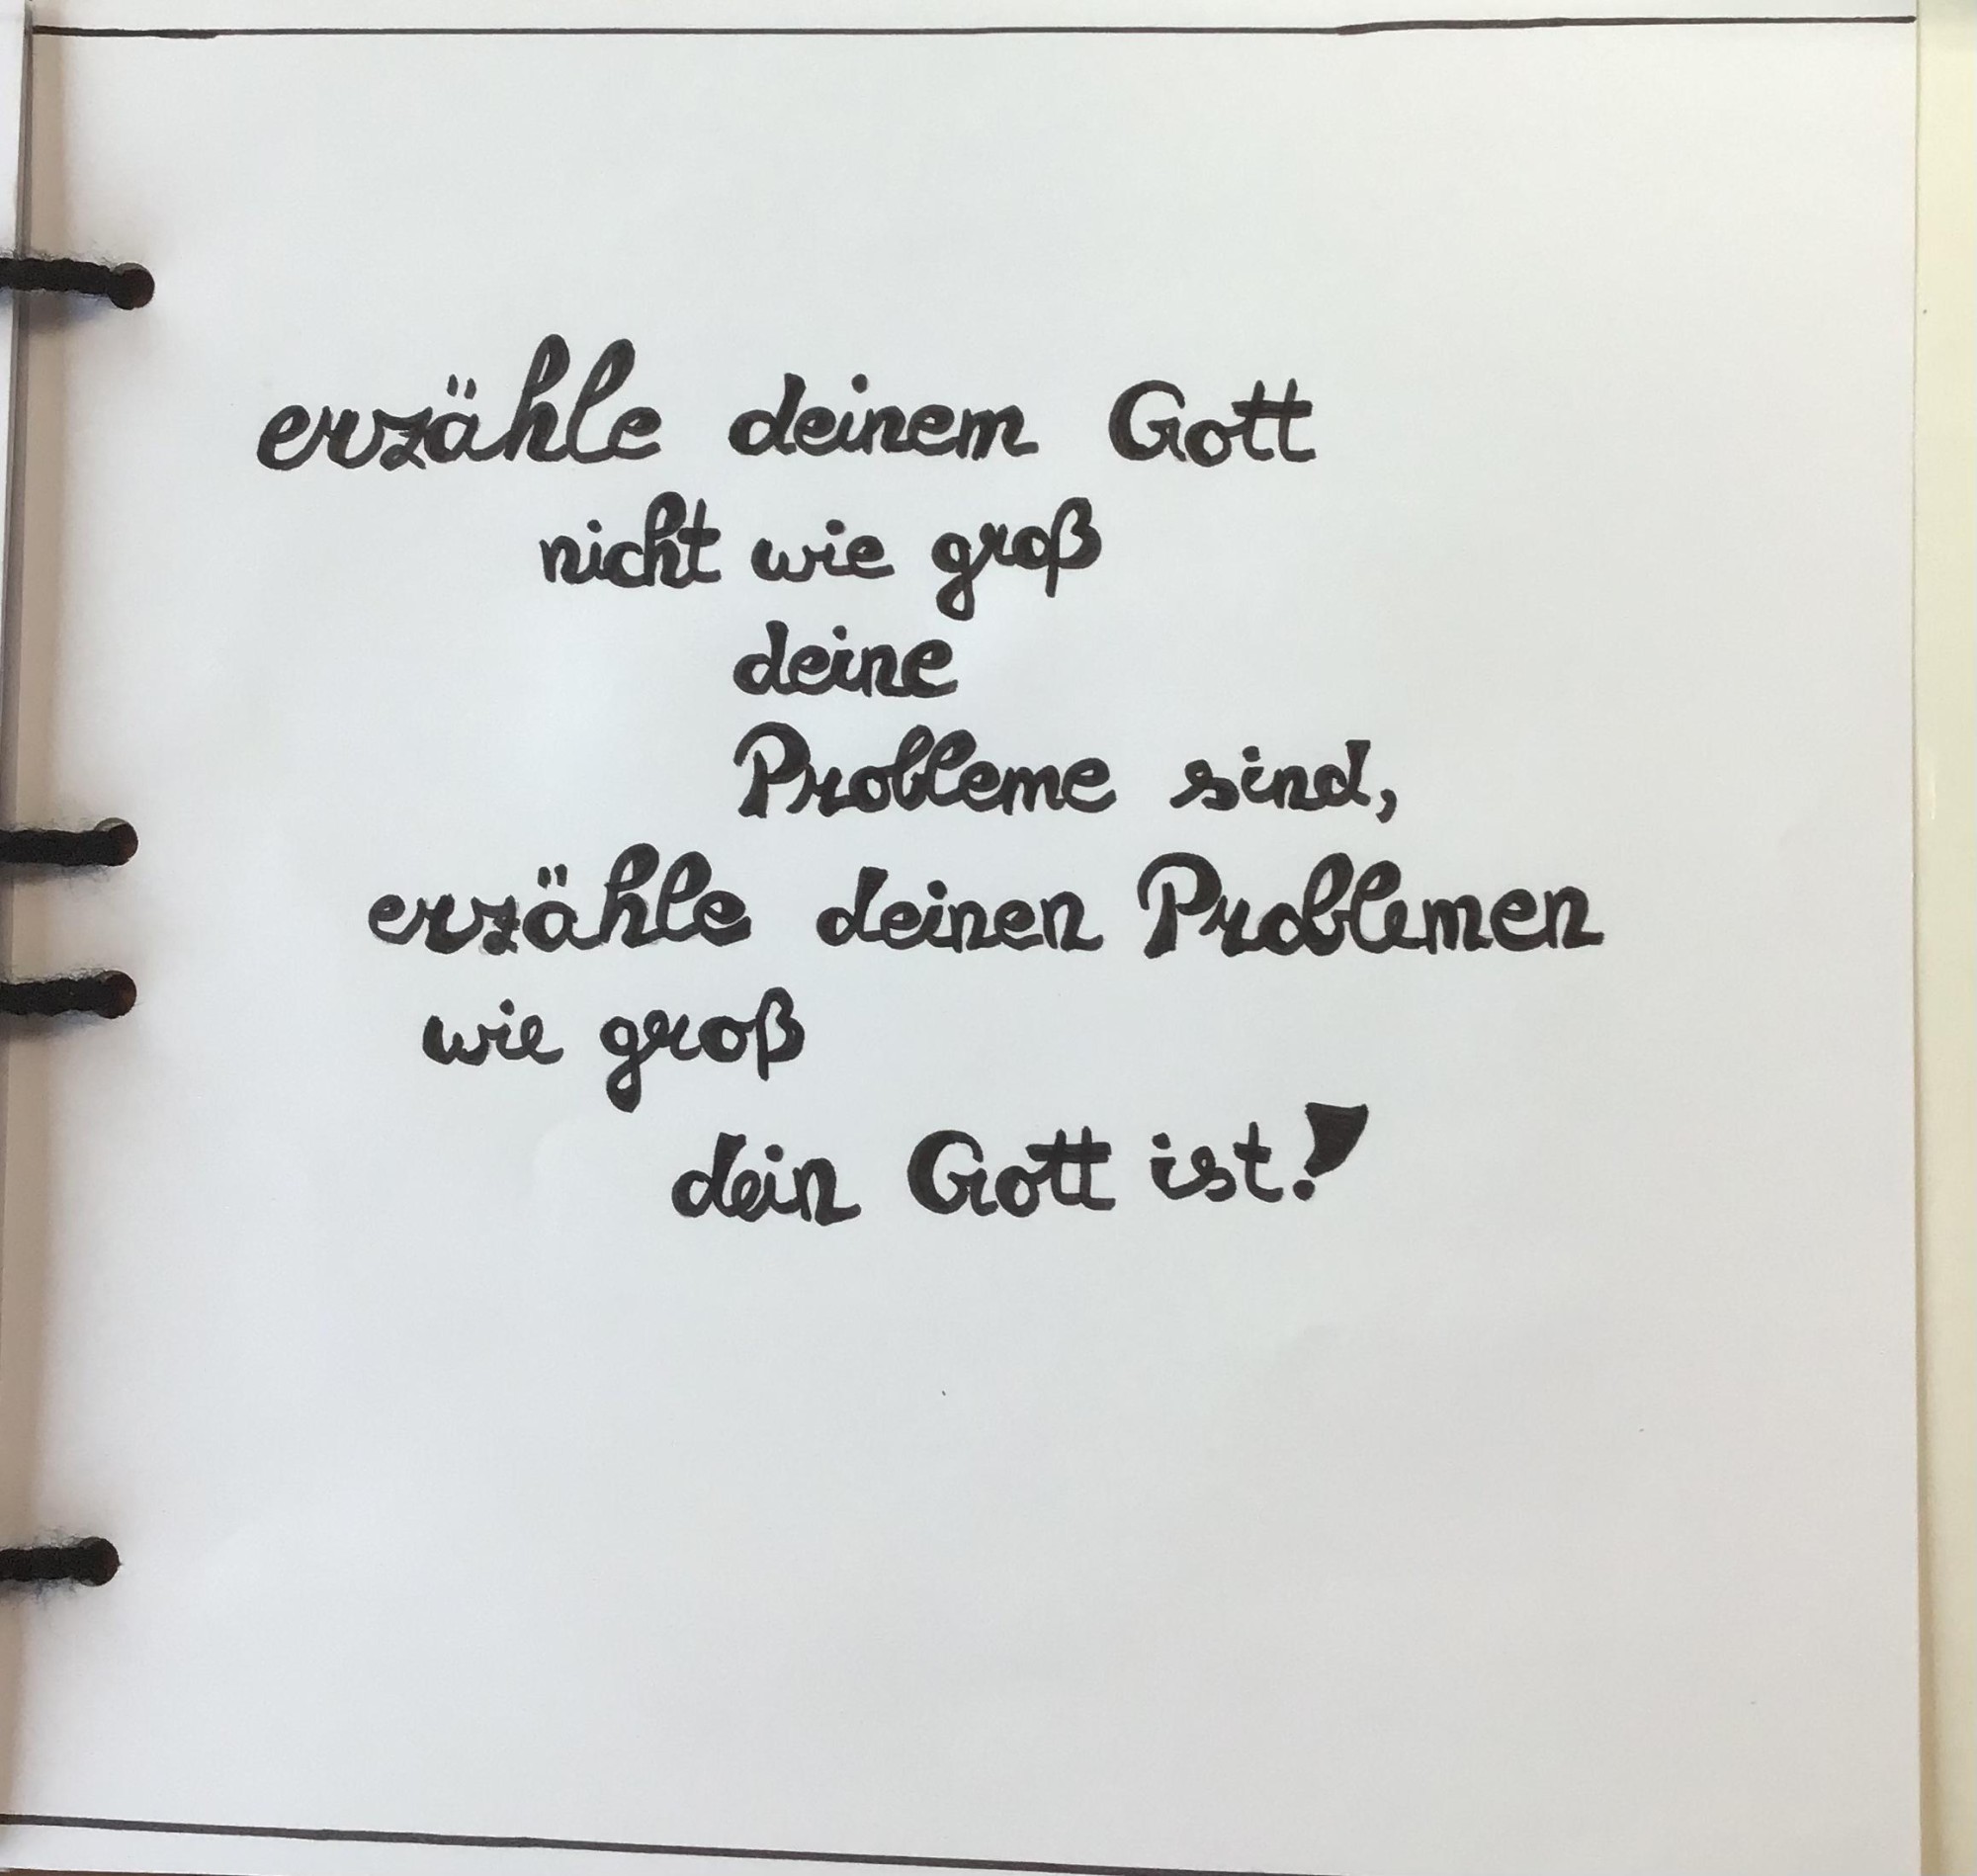 erzähle deinem Gott
nicht wie groß
deine
Probleme sind,
erzähle deinen Problemen
wie groß
dein Gott ist!